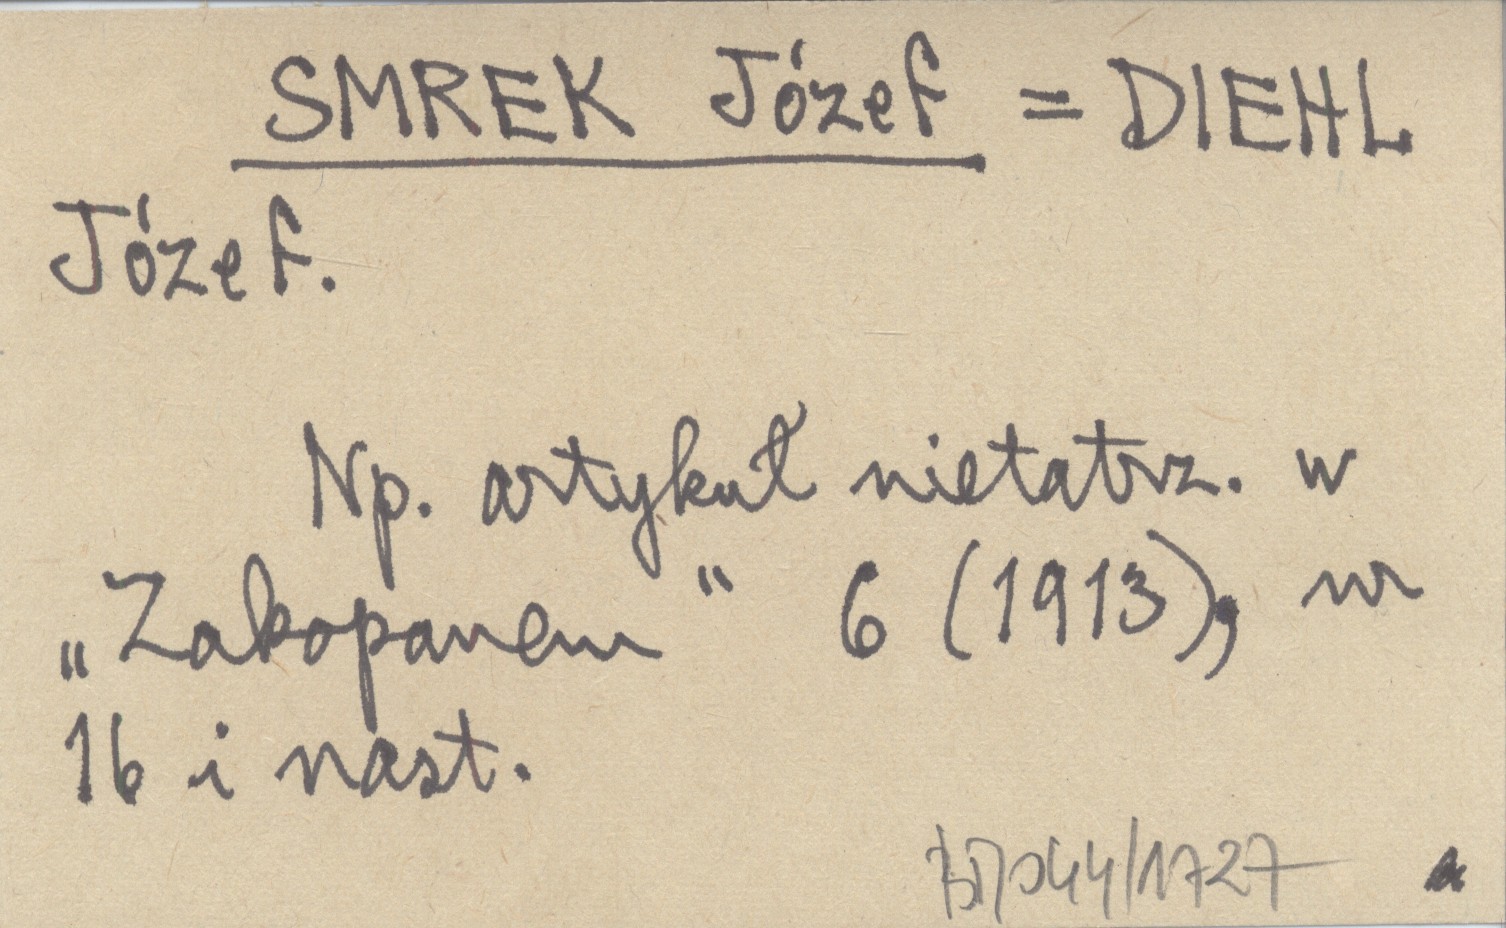 SMREK Józef = DIEHL
Józef.
Np. artykuł nietatrz. w
„Zakopanem" 6 (1913), nr
16 i nast.